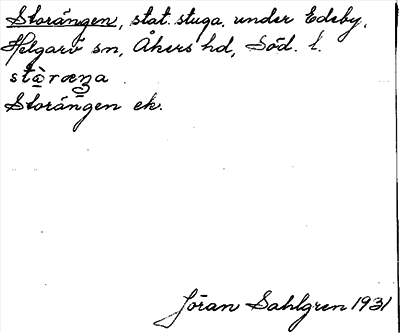 Storängen, stat. stuga. under Edeby,
Helgarö sn, Åkers hd, Söd. l.
stòræŋa
Storängen ek.
Jöran Sahlgren 1931